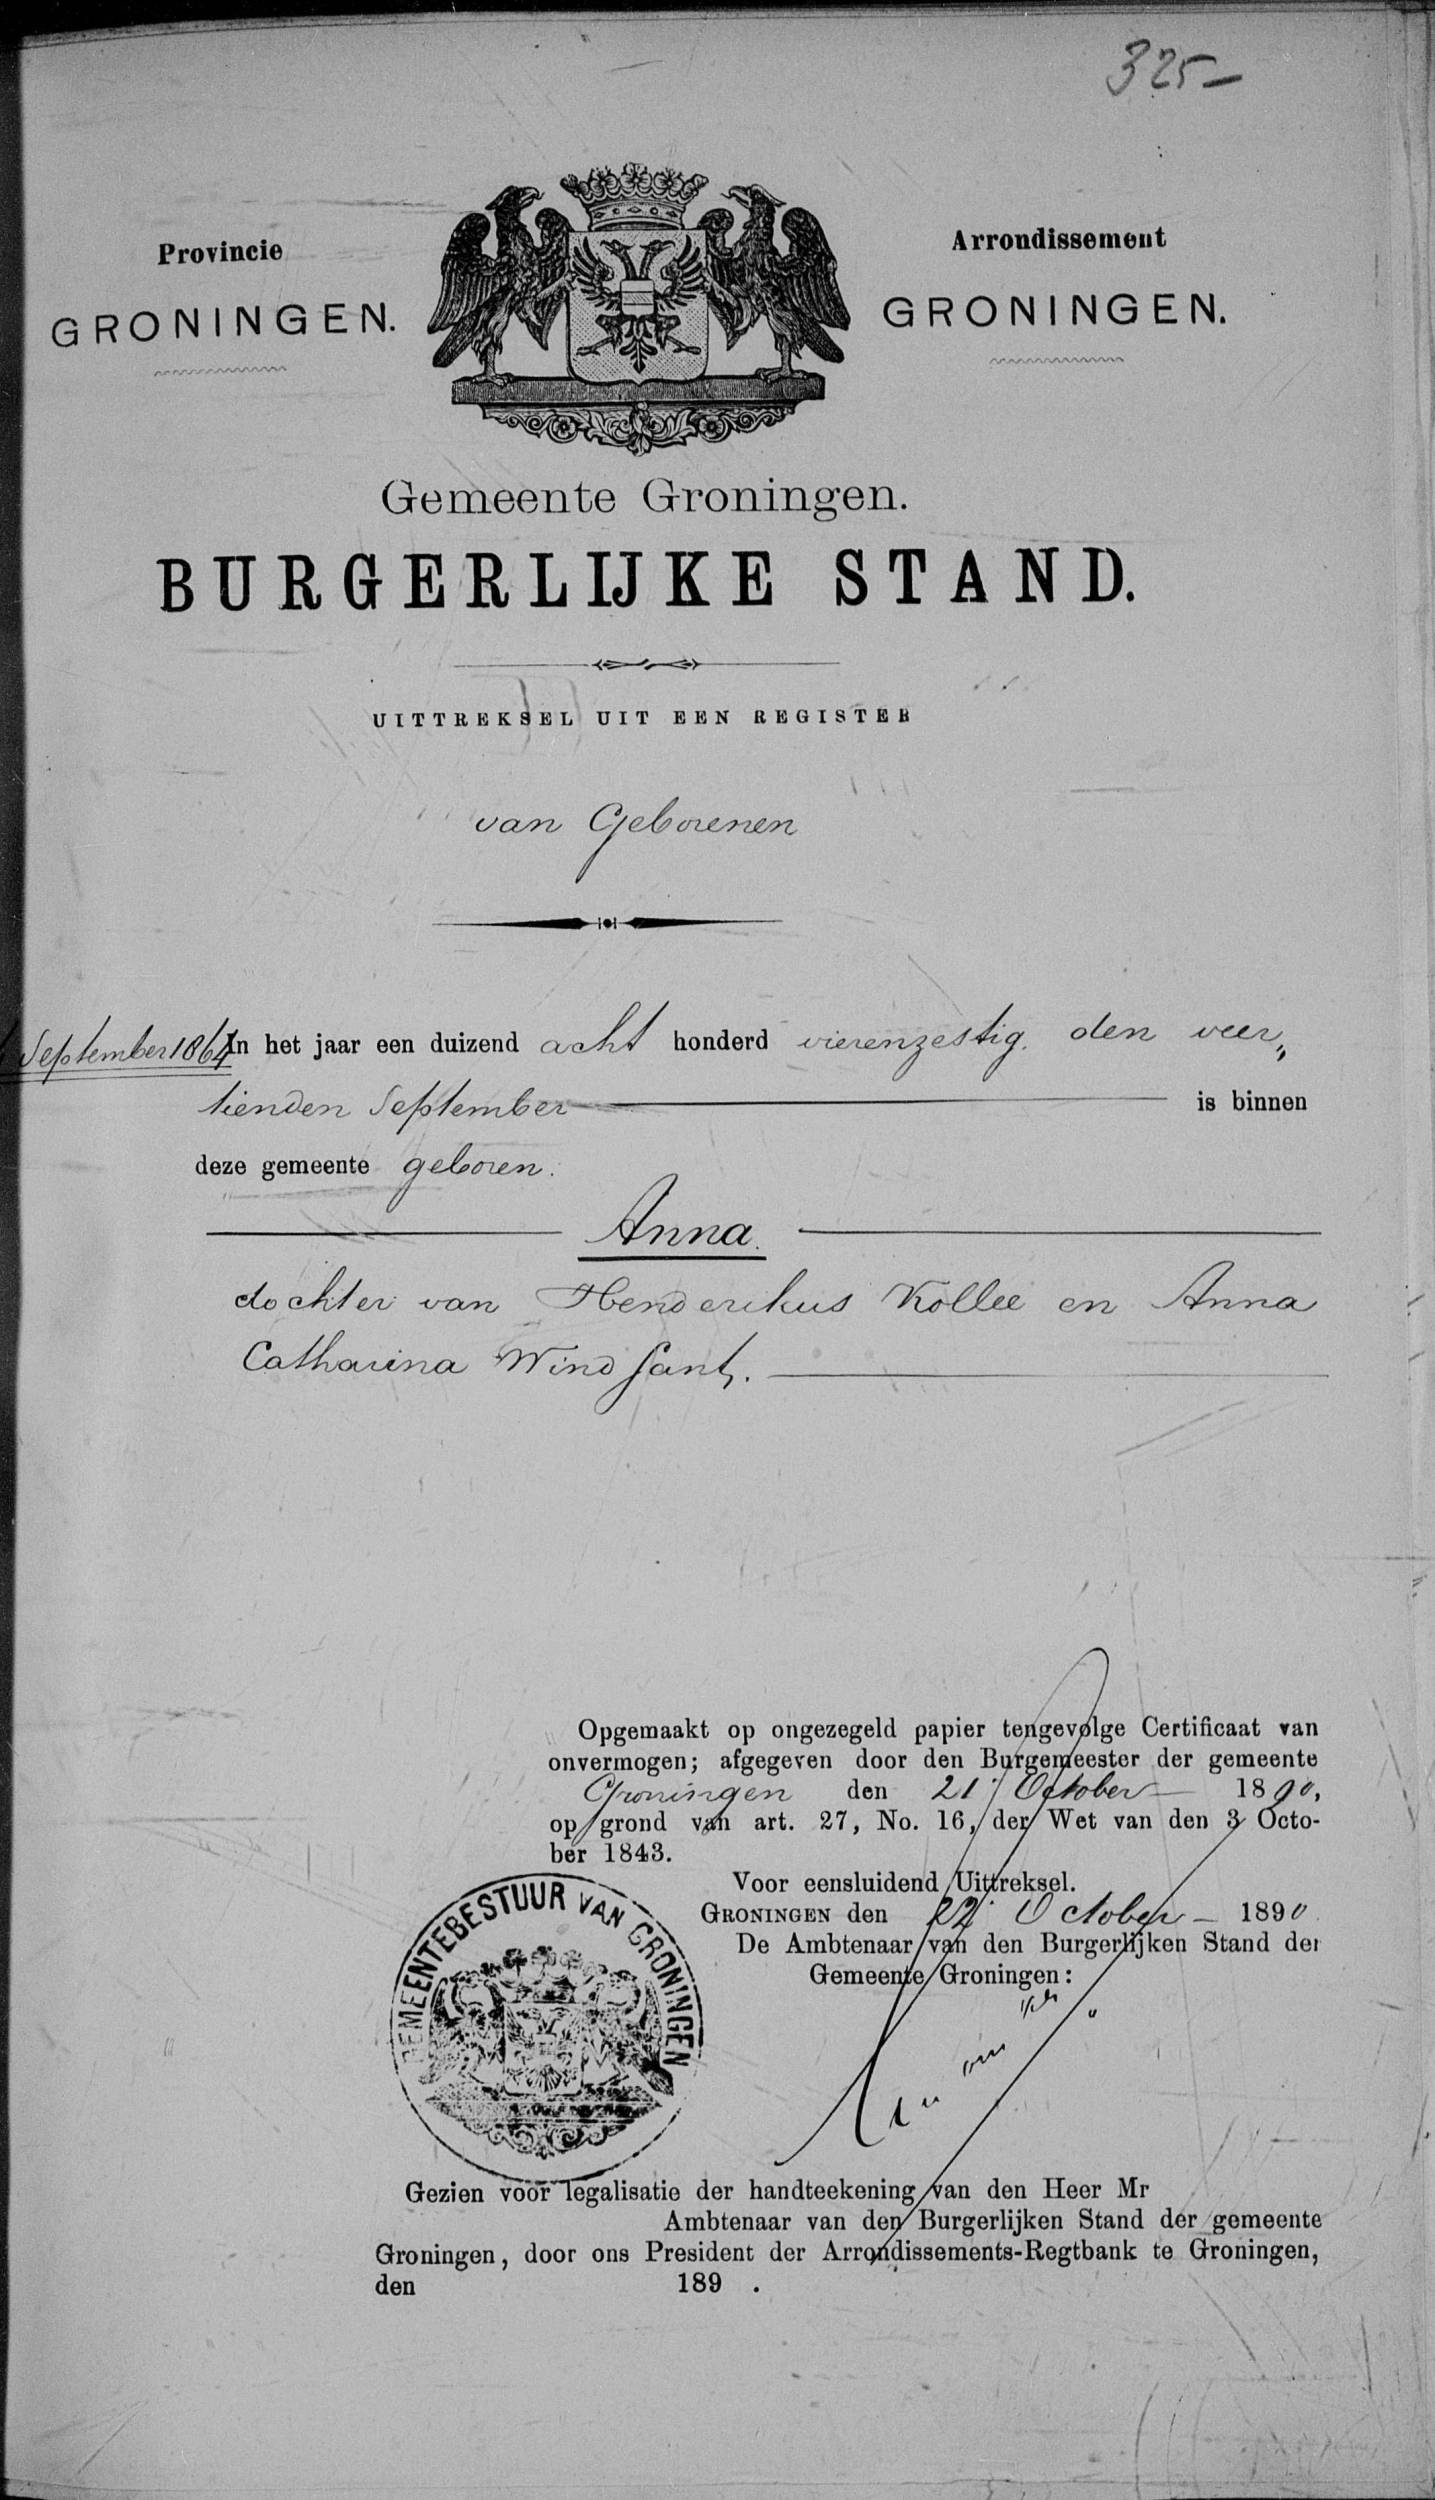 325-
Provincie
GRONINGEN.
Arrondissement
GRONINGEN.
Gemeente Groningen.
BURGERLIJKE STAND.
UITTREKSEL UIT EEN REGISTER
van Geborenen
September 1864
In het jaar een duizend acht honderd vierenzestig den veer„
tienden September is binnen
deze gemeente geboren.
Anna
dochter van Henderikus Kollee en Anna
Catharina Windsant.
Opgemaakt op ongezegeld papier tengevolge Certificaat van
onvermogen; afgegeven door den Burgemeester der gemeente
Groningen den 21 October 1890,
op grond van art. 27, No. 16, der Wet van den 3 Octo-
ber 1843.
Voor eensluidend Uittreksel.
GRONINGEN den 22 October - 1890
De Ambtenaar van den Burgerlijken Stand der
Gemeente Groningen:
GEMEENTEBESTUUR VAN GRONINGEN
Gezien voor legalisatie der handteekening van den Heer Mr
Ambtenaar van den Burgerlijken Stand der gemeente
Groningen, door ons President der Arrondissements-Regtbank te Groningen,
den 189 .